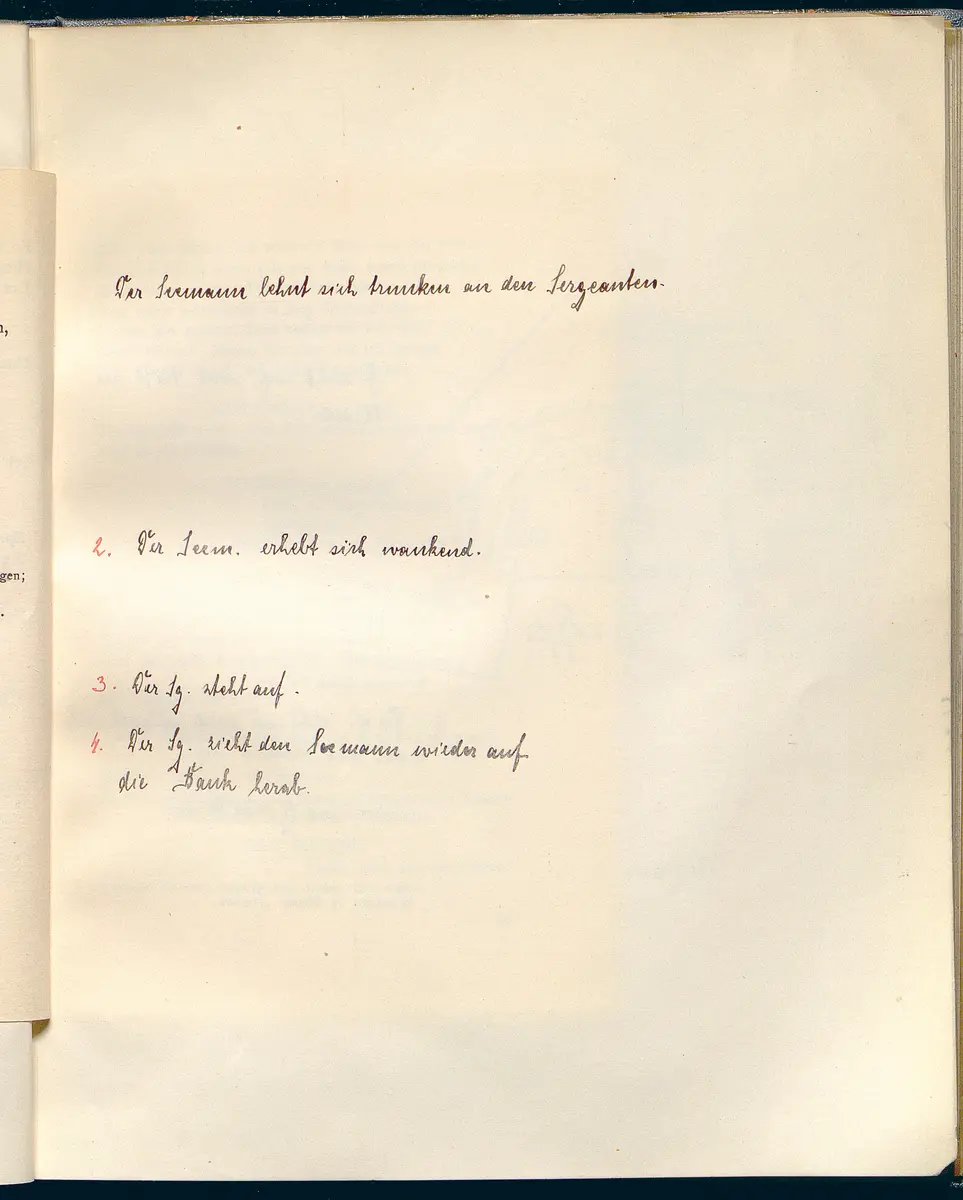 n,
Der Seemann lehnt sich trunken an den Sergeanten.
2. Der Seem. erhebt sich wankend.
gen;
.
3. Der Sg. steht auf.
4. Der Sg. zieht den Seemann wieder auf
die Bank herab.